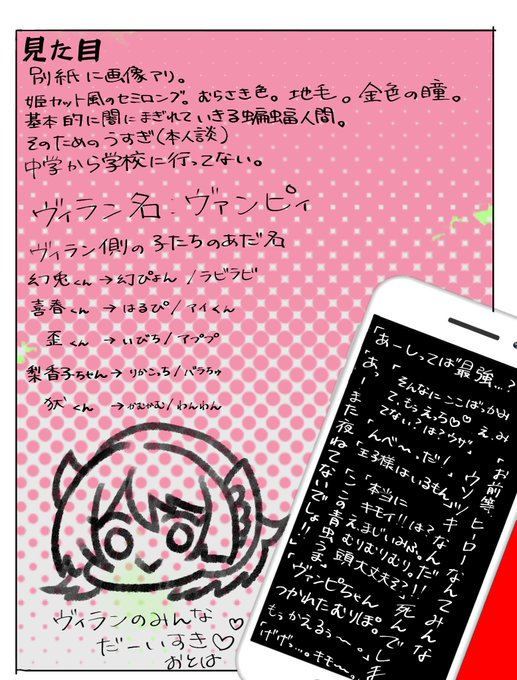 見た目
別紙に画像アリ。
姫カット風のセミロング。むらさき色。地毛。金色の瞳。
基本的に闇にまぎれていきる蝙蝠人間。
そのためのうすぎ(本人談)
中学から学校に行ってない。
ヴィラン名:ヴァンピィ
ヴィラン側の子たちのあだ名
幻兎くん→幻ぴょん/ラビラビ
喜春くん→はるぴ/アイくん
歪くん→いびち/アププ
梨香子ちゃん→りかこっち/バラちゅ
くん→かむかむ/わんわん
ヴィランのみんな
だーいすき♡♡
おとは
「あーしってば最強…?」
「そんなにここばっかみ
て、もぅえっち♡♡え、み
てない?は?ウザッ」
「んべ〜、だ!」
「王子様はいるもん」
「お前等ヒーローなんてみんな
「本当にキモイ!!は?な
むりむりむり。だ
頭大丈夫そ?!」
「あっーまた夜ねてないでしょ!!
「ヴァンピちゃん
つかれたむりぽ。
もぅかえるぅ〜。」
「げげっ…。キモ〜。